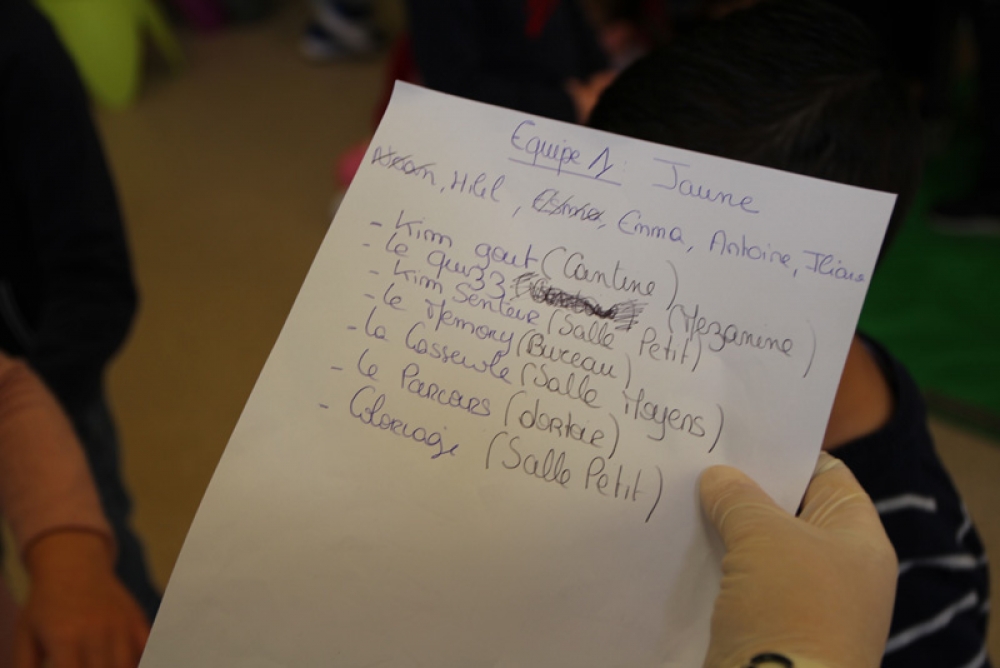 Equipe 1 Jaune
Hilel, Emma, Antoine, Ilian
- Kim gout (Cantine)
- Le quizz (Mezanine)
- Kim Senteur (Salle Petit)
- Le Memory (Bureau)
- La Casserole (Salle Moyens)
- Le Parcours (dortoir)
- Coloriage (Salle Petit)